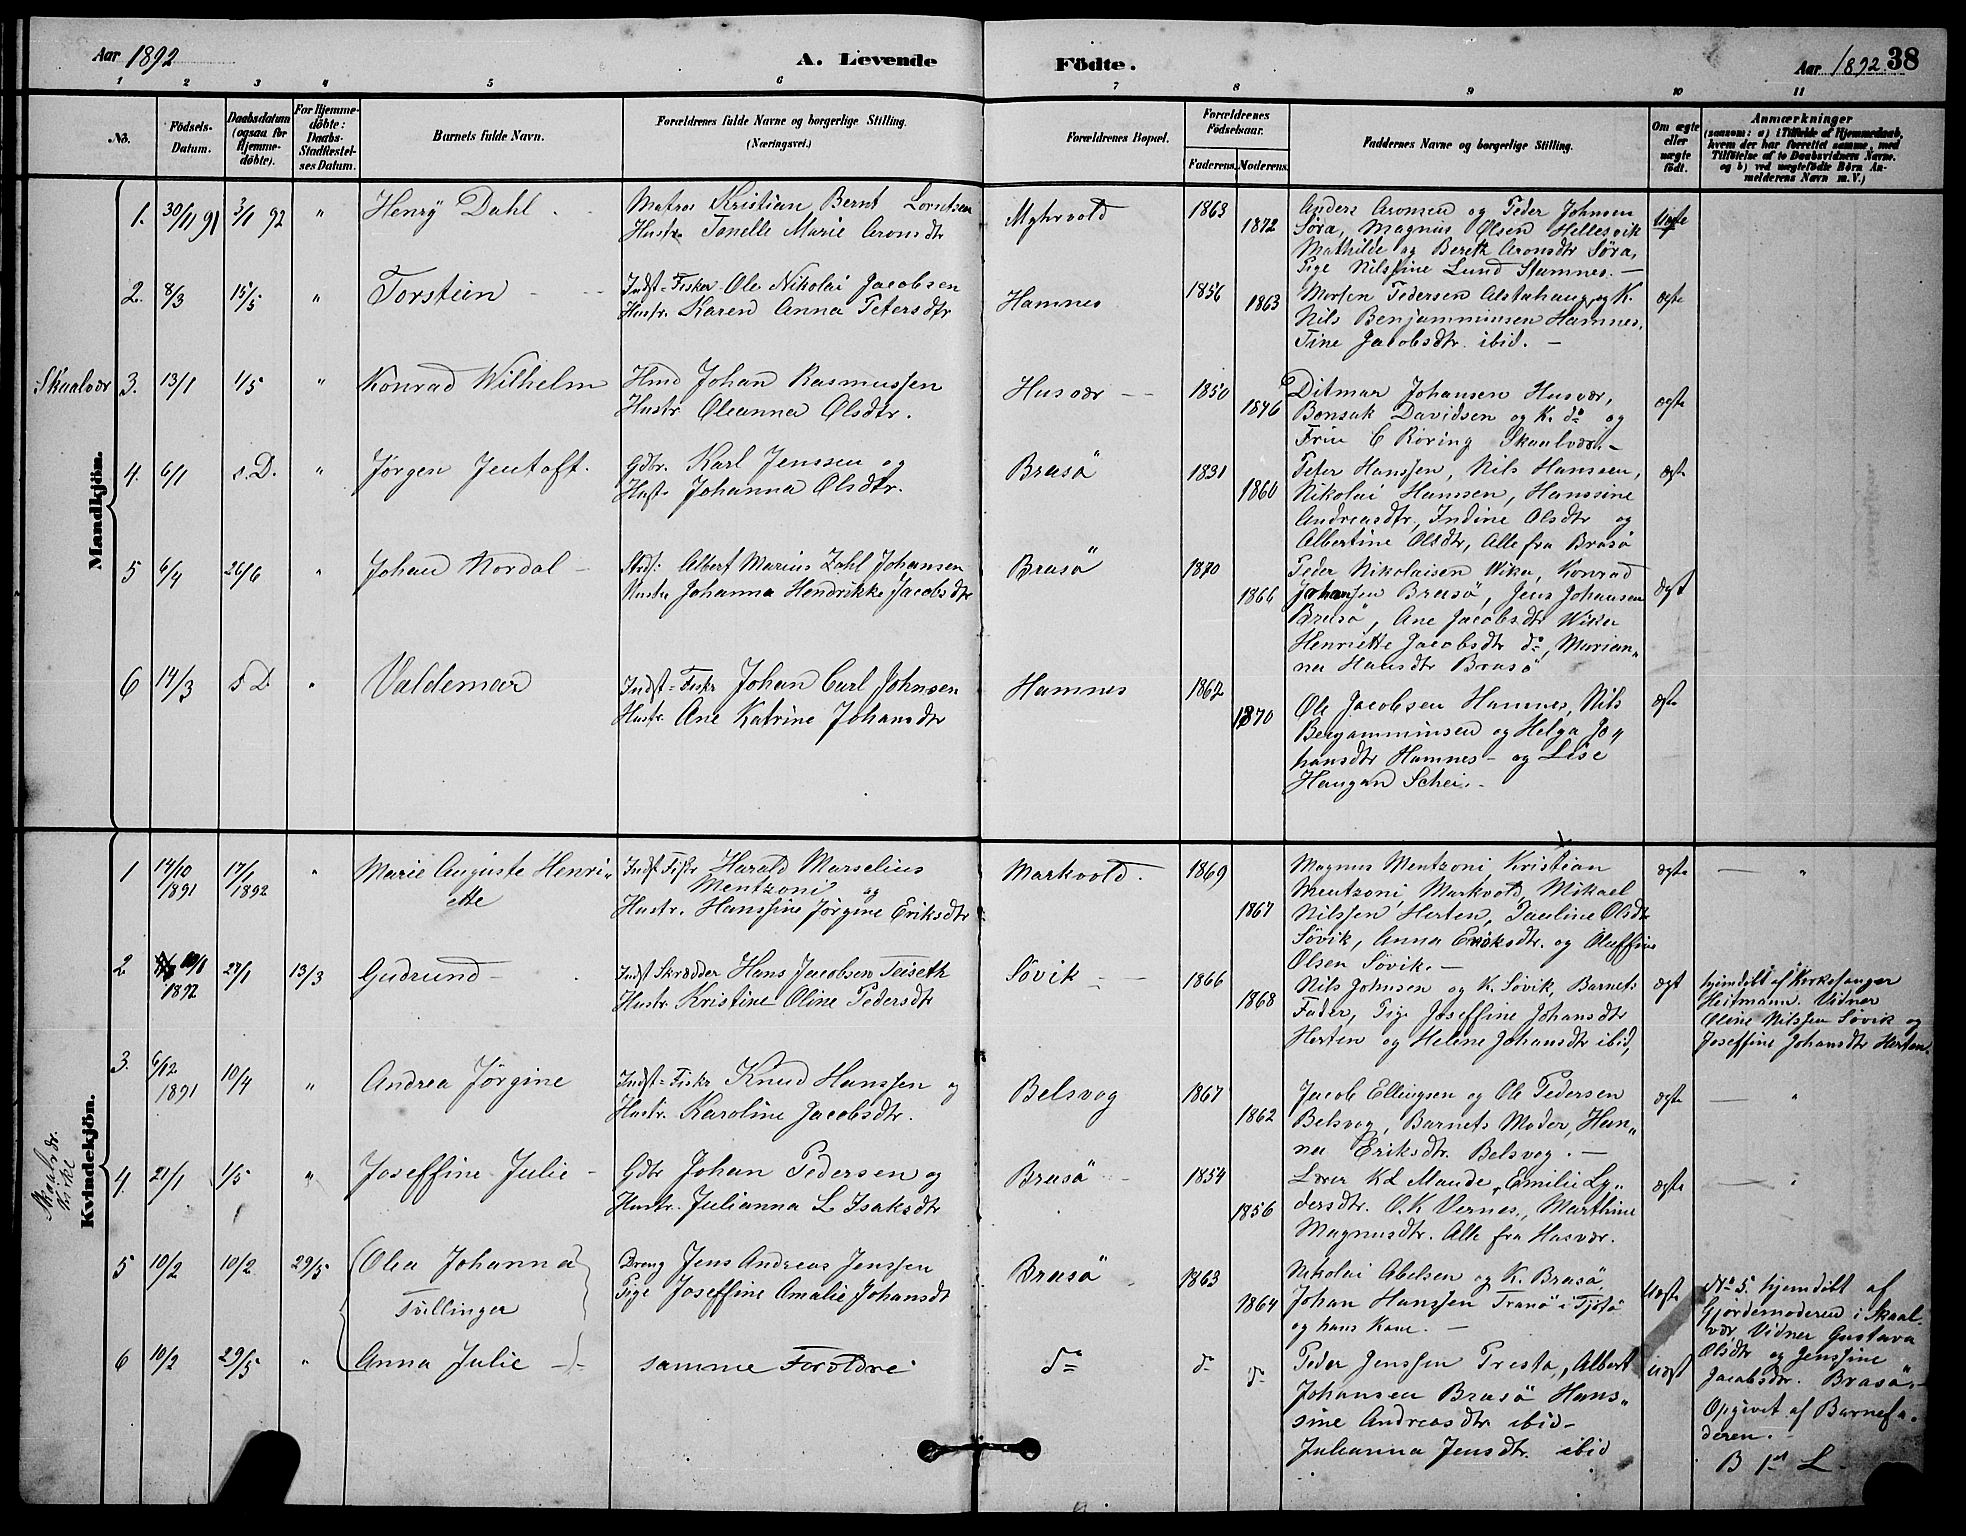 Aar 1892
A. Levende Födte.
Aar 1892 38
1 2 3 4 5 6 7 8 9 10 11
No.
Födsels-Datum.
Daabsdatum (ogsaa for Hjemme-döbte).
For Hjemme-döbte: Daabs-Stadfæstel-ses Datum.
Barnets fulde Navn.
Forældrenes fulde Navne og borgerlige Stilling. (Næringsvei.)
Forældrenes Bopæl.
Forældrenes Födselsaar.
Faderens. Moderens.
Faddernes Navne og borgerlige Stilling.
Om ægte eller uægte födt.
Anmærkninger
(saasom: a) i Tilfælde af Hjemmedaab, hvem der har forrettet samme, med Tilföielse af to Daabsvidners Navne, og b) ved uægtefödte Börn An-melderens Navn m.V.)
Skaalvær
Mandkjön.
1. 30/11 91 3/1 92 " Henry Dahl
Matros Kristian Bernt Lorntsen
Hustr. Tonelle Marie Aronsdtr
Myhrvold 1863 1872
Anders Aronsen og Peder Johnsen
Søra, Magnus Olsen Hellesvik
Mathilde og Beret Aronsdtr Søra,
Pige Nilssine Lund Stamnes. —
Uægte
2. 8/3 15/5 " Torstein
Indst-Fisker Ole Nikolai Jacobsen
Hustr. Karen Anna Petersdtr
Hamnes 1856 1863
Morten Pedersen Alstahaug, og K.
Nils Benjamminsen Hamnes,
Tine Jacobsdtr. ibid. —
ægte
3. 13/1 1/5 " Konrad Wilhelm
Hmd Johan Rasmussen
Hustr. Oleanna Olsdtr.
Husvær 1850 1846
Ditmar Johansen Husvær,
Bonsak Davidsen og K. do og
Frue C Röring Skaalvær. —
ægte
4. 6/1 s.D. " Jørgen Jentoft.
Gdbr. Karl Jenssen og
Hustr. Johanna Olsdtr.
Brasö 1831 1860
Peter Hanssen, Nils Hanssen,
Nikolai Hanssen, Hanssine
Andreasdtr, Indine Olsdtr og
Albertine Olsdtr, Alle fra Brasö
ægte
5 6/4 26/6 " Johan Nordal
Albert Marius Zahl Johansen
Hustr Johanna Hendrikke Jacobsdtr
Brasö 1870 1866
Peder Nikolaisen Wika, Konrad
Johansen Brasö, Jens Johansen
Brasö, Ane Jacobsdtr Wika
Henriette Jacobsdtr do, Marian„
na Hansdtr Brasö
ægt
6 14/3 s D. " Valdemar
Indst-Fiskr Johan Carl Johnsen
Hustr. Ane Katrine Johansdtr
Hamnes 1862 1870
Ole Jacobsen Hamnes, Nils
Benjamminsen og Helga Jo„
hansdtr Hamnes - og Lise
Haugan Schei. -
ægte
Skaalvær Kirke
Kvindekjön.
1 14/10 1891 17/1 1892 " Marie Auguste Henri„
ette
Indst Fiskr Harald Marselius
Mentzoni og
Hustr. Hanssine Jörgine Eriksdtr
Markvold. 1869 1867
Magnus Mentzoni, Kristian
Mentzoni, Markvold, Mikael
Nilssen Herten, Pauline Olsdtr
Søvik, Anna Eriksdtr. og Oluffine
Olsen Søvik. —
ægte — "
2 10/1 1892 27/1 13/3 Gudrund
Indst Skrædder Hans Jacobsen Teiseth
Hustr. Kristine Oline Pedersdtr
Søvik 1866 1868
Nils Johnsen og K. Søvik, Barnets
Fader, Pige Joseffine Johansdtr
Herten og Helene Johansdtr ibid,
ægt
hjemdöbt af Kirkesanger
Heitmann. Vidner
Oline Nilssen Søvik og
Joseffine Johansdtr Herten.
3. 6/12 1891 10/4 " Andrea Jörgine
Indst-Fiskr Knud Hanssen og
Hustr. Karoline Jacobsdtr.
Belsvog 1867 1862
Jacob Ellingsen og Ole Pedersen
Belsvog, Barnets Moder, Han„
na Eriksdtr. Belsvog. —
ægte — "
4. 21/1 1/5 " Joseffine Julie
Gdbr Johan Pedersen og
Hustr. Julianna L Isaksdtr
Brasö 1854 1856
Lærer K L Maude, Emilie Ly„
dersdtr. O. K Vernes, Marthine
Magnusdtr. Alle fra Husvær.
ægte — "
5 10/2 10/2 29/5 Olea Johanna
Tvillinger
Dreng Jens Andreas Jenssen
Pige Joseffine Amalie Johansdt
Brasö 1863 1864
Nikolai Abelsen og K. Brasö,
Johan Hanssen Tranö i Tjötö
og hans Kone. —
Uægte
No 5. hjemdöbt af
Gjordemoderen i Skaal-
vær, Vidner Gustava
Olsdtr og Jenssine
Jacobsdtr. Brasö. -
Opgivet af Barnefa„
deren. -
6 10/2 29/5 " Anna Julie
samme Forældre
do do do
Peder Jenssen Presto, Albert
Johansen Brasö Hans„
sine Andreasdtr ibid -
Julianna Jensdtr ibid
Uægt